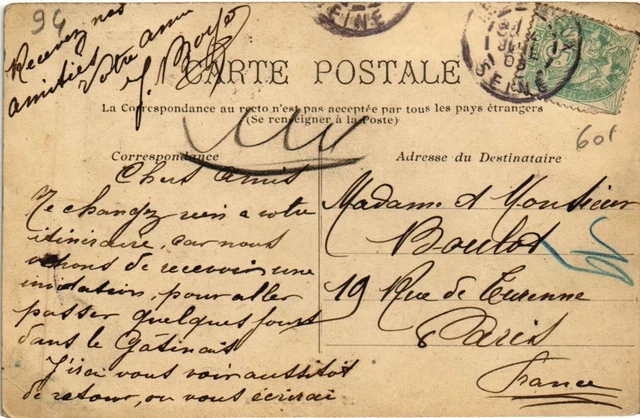 94
Recevez nos
amitiés
Votre amie
J. Boyé
SEINE
SEINE
CARTE POSTALE
La Correspondance au recto n'est pas acceptée par tous les pays étrangers
(Se renseigner à la Poste)
60f
Correspondance
Adresse du Destinataire
Chers Amis
Ne changez rien a votre
itinéraire, car nous
venons de recevoir une
invitation, pour aller
passer quelques jours
dans le Gâtinais
J'irai vous voir aussitôt
de retour, ou vous écrirai
Madame et Monsieur
Boulot
19 Rue de Turenne
Paris
France